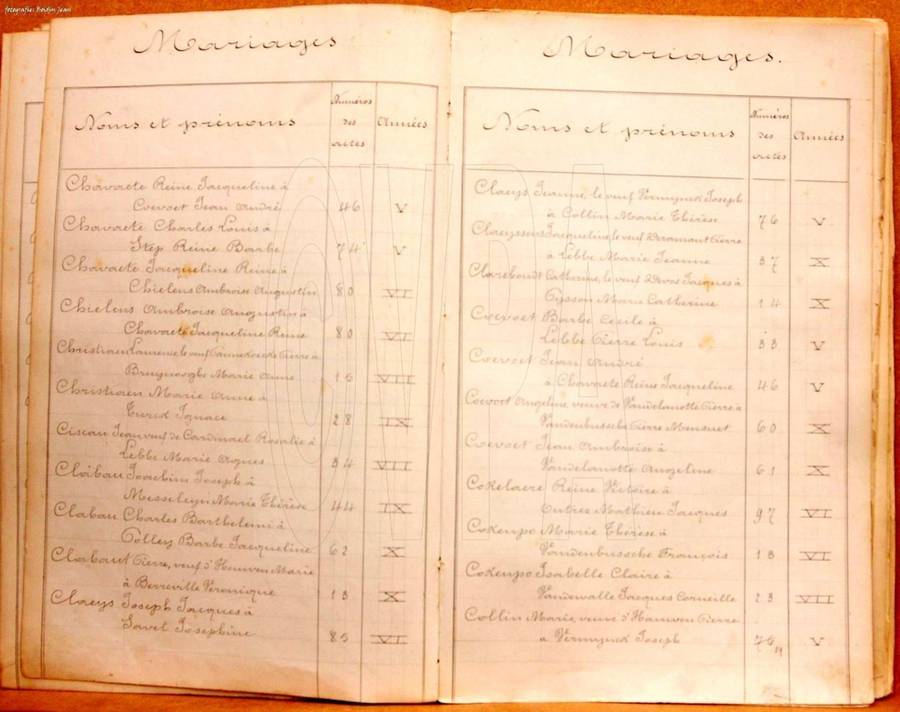 fotografie: Boidin Jean
Mariages
Noms et prénoms
Numéros des actes
Années
Chavaete Reine Jacqueline à
Coevoet Jean André 46 V
Chavaete Charles Louis à
Stép Reine Barbe 74 V
Chavaete Jacqueline Reine à
Chielens Ambroise Augustin 80 VI
Chielens Ambroise Augustin à
Chavaete Jacqueline Reine 80 VI
Christiaen Laurence, le veuf Pierre à
Bruynooghe Marie Anne 15 VII
Christiaen Marie Anne à
Ignace 28 IX
Ciseau Jean veuf de Cardinael Rosalie à
Lebbe Marie Agnes 34 VII
Clabau Joachim Joseph à
Messeleyn Marie Thérèse 44 IX
Clabau Charles Barthelemi à
Colley Barbe Jacqueline 62 X
Clabaut Pierre, veuf d'Hauwen Marie
à Berreville Véronique 13 X
Claeys Joseph Jacques à
Savel Josephine 85 VI
Mariages.
Noms et prénoms
Numéros des actes
Années
Claeys Jeanne, le veuf Vermynck Joseph
à Collin Marie Thérèse 76 V
Claeyssens Jacqueline, le veuf Pierre
à Lebbe Marie Jeanne 37 X
Clarebondt Catherine, le veuf Jacques à
Marie Catherine 14 X
Coevoet Barbe Cecile à
Lebbe Pierre Louis 33 V
Coevoet Jean André
à Chavaete Reine Jacqueline 46 V
Coevoet Angeline, veuve de Vandelanotte Pierre à
Vandenbussche Pierre Mansuet 60 X
Coevoet Jean Ambroise à
Vandelanotte Angeline 61 X
Cokelaere Reine Victoire à
Outtes Mathieu Jacques 97 VI
Cokenpo Marie Thérèse à
Vandenbussche François 13 VI
Cokenpo Isabelle Claire à
Vandewalle Jacques Corneille 23 VII
Collin Marie, veuve d'Hauwen Pierre
à Vermynck Joseph 76 V